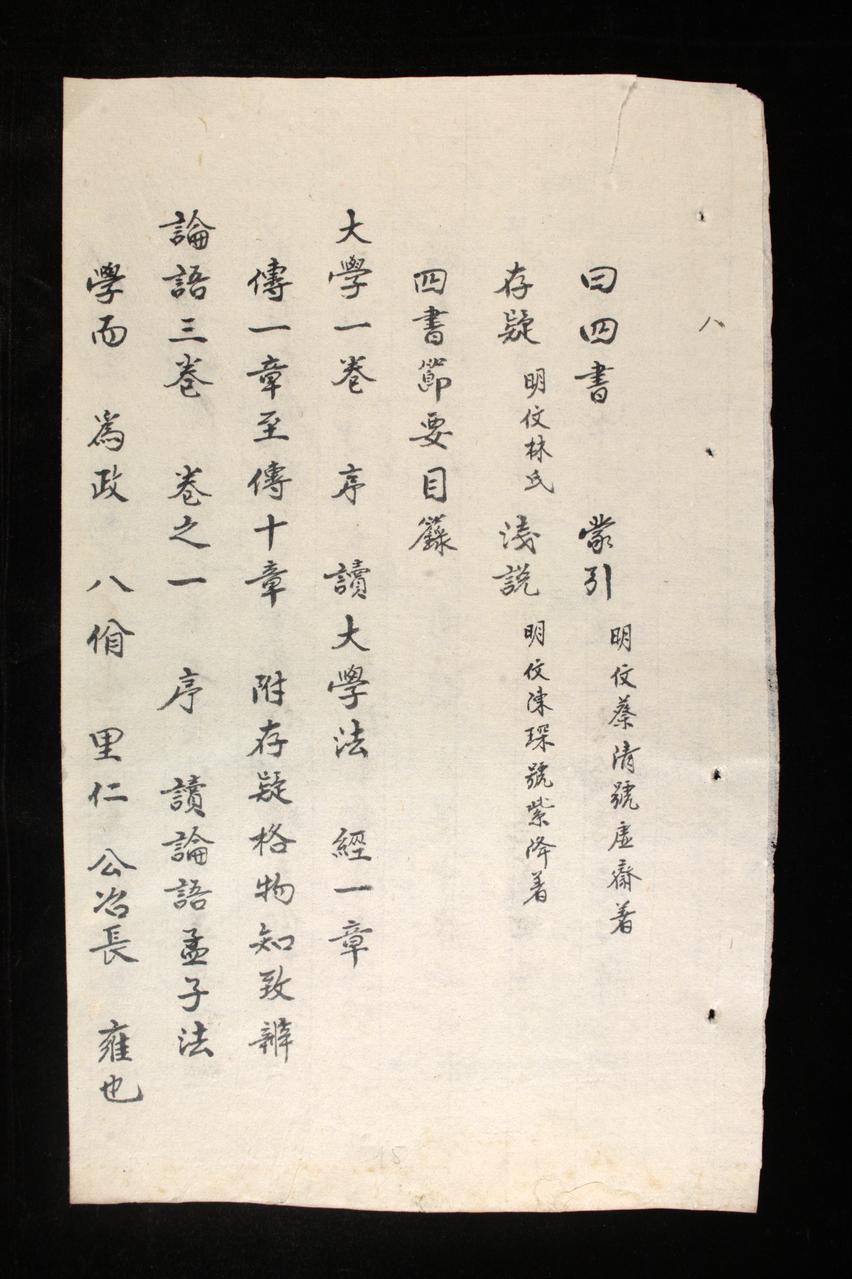 八
曰四書 蒙引 明仅蔡清號虛齋著
存疑 明仅林氏 淺説 明仅陳琛號紫降著
四書節要目籙
大學一卷 序 讀大學法 經一章
傳一章至傳十章 附存疑格物知致辨
論語三卷 卷之一 序 讀論語孟子法
學而 爲政 八佾 里仁 公冶長 雍也